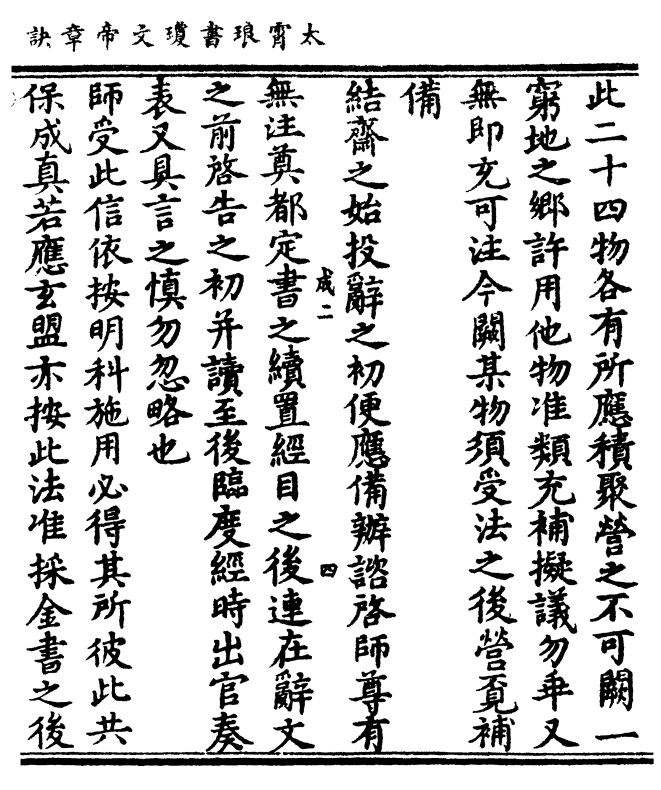 太霄琅書瓊文帝章訣
此二十四物各有所應積聚營之不可闕一
窮地之鄉許用他物准類充補擬議勿乖又
無即充可注今闕某物須受法之後營覓補
備
結齋之始投辭之初便應備辦諮啓師尊有
無注奠都定書之續置經目之後連在辭文
之前啓告之初并讀至後臨度經時出官奏
表又具言之慎勿忽略也
師受此信依按明科施用必得其所彼此共
保成真若應玄盟亦按此法准採金書之後
成二
四